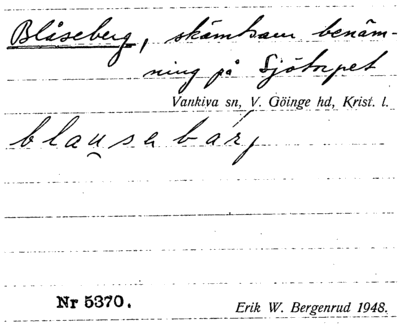 Blåseberg, skämtsam benäm-
ning på Sjötorpet
Vankiva sn, V. Göinge hd, Krist. l.
blau̯sabarj
Nr 5370.
Erik W. Bergenrud 1948.